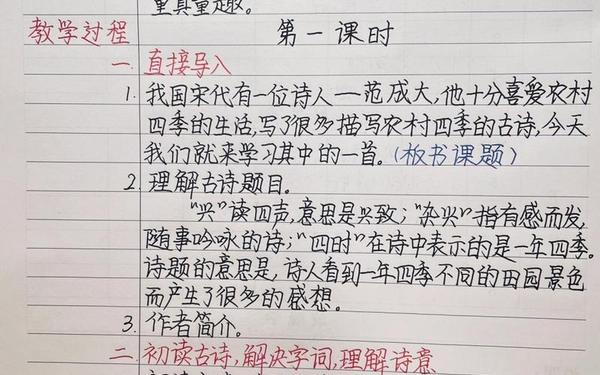 里真童趣。
教学过程 第一课时
一. 直接导入
1. 我国宋代有一位诗人一范成大,他十分喜爱农村
四季的生活,写了很多描写农村四季的古诗,今天
我们就来学习其中的一首。(板书课题)
2. 理解古诗题目。
"兴"读四声,意思是兴致;"杂兴"指有感而发,
随事吟咏的诗;"四时"在诗中表示的是一年四季。
诗题的意思是,诗人看到一年四季不同的田园景色
而产生了很多的感想。
3. 作者简介。
二. 初读古诗,解决字词,理解诗意